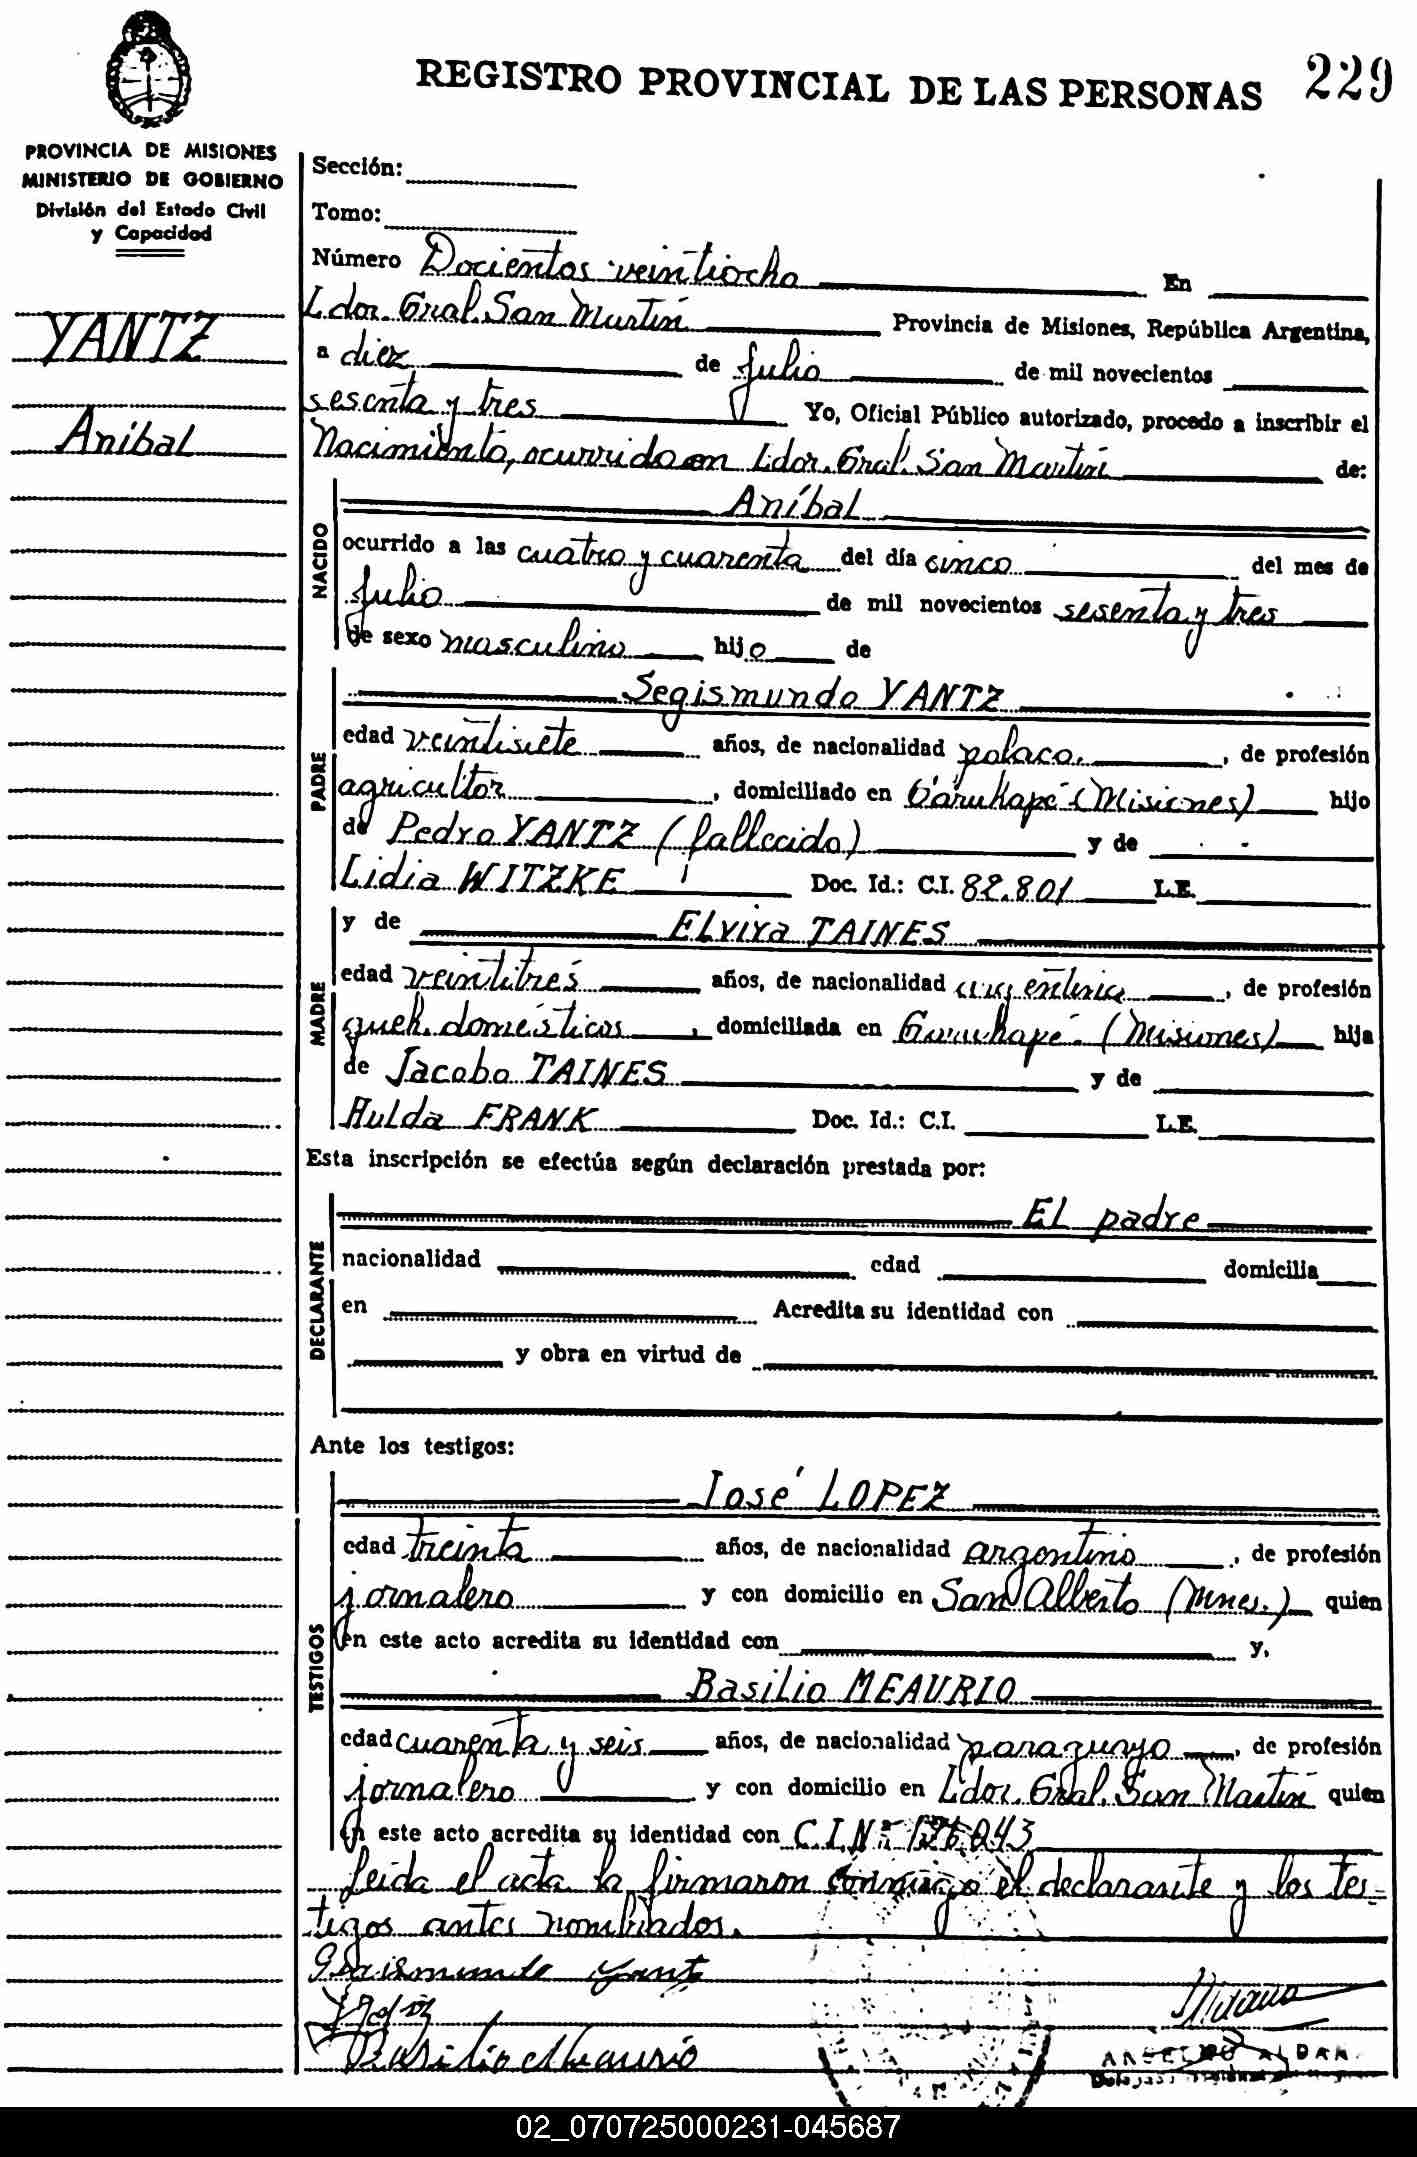 REGISTRO PROVINCIAL DE LAS PERSONAS 229
PROVINCIA DE MISIONES
MINISTERIO DE GOBIERNO
División del Estado Civil
y Capacidad
YANTZ
Aníbal
Sección:
Tomo:
Número Docientos veintiocho En
Ldor. Gral. San Martín Provincia de Misiones, República Argentina,
a diez de julio de mil novecientos
sesenta y tres Yo, Oficial Público autorizado, procedo a inscribir el
Nacimiento, ocurrido en Ldor. Gral. San Martín de:
NACIDO
Aníbal
ocurrido a las cuatro y cuarenta del día cinco del mes de
julio de mil novecientos sesenta y tres
de sexo masculino hijo de
PADRE
Segismundo YANTZ
edad veintisiete años, de nacionalidad polaco, de profesión
agricultor, domiciliado en Garuhapé (Misiones) hijo
de Pedro YANTZ (fallecido) y de
Lidia WITZKE Doc. Id.: C.I. 82.801 L.E.
MADRE
y de Elvira TAINES
edad veintitrés años, de nacionalidad argentina, de profesión
queh. domésticos, domiciliada en Garuhapé. (Misiones) hija
de Jacobo TAINES y de
Hulda FRANK Doc. Id.: C.I. L.E.
Esta inscripción se efectúa según declaración prestada por:
DECLARANTE
El padre
nacionalidad edad domicilia
en Acredita su identidad con
y obra en virtud de
Ante los testigos:
TESTIGOS
José LOPEZ
edad treinta años, de nacionalidad argentino, de profesión
jornalero y con domicilio en San Alberto (Mnes.) quien
en este acto acredita su identidad con y,
Basilio MEAURIO
edad cuarenta y seis años, de nacionalidad paraguayo, de profesión
jornalero y con domicilio en Ldor. Gral. San Martín quien
en este acto acredita su identidad con C.I.Nº 126043
Leída el acta la firmaron conmigo el declarante y los tes-
tigos antes nombrados.
Segismundo Yantz
Basilio Meaurio
02_070725000231-045687